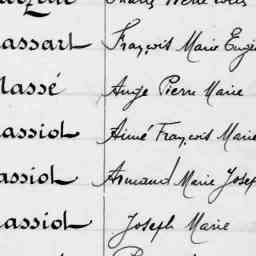 assart François Marie Eugè
Massé Ange Pierre Marie
assiot Aimé François Marie
assiot Armand Marie Josep
assiot Joseph Marie